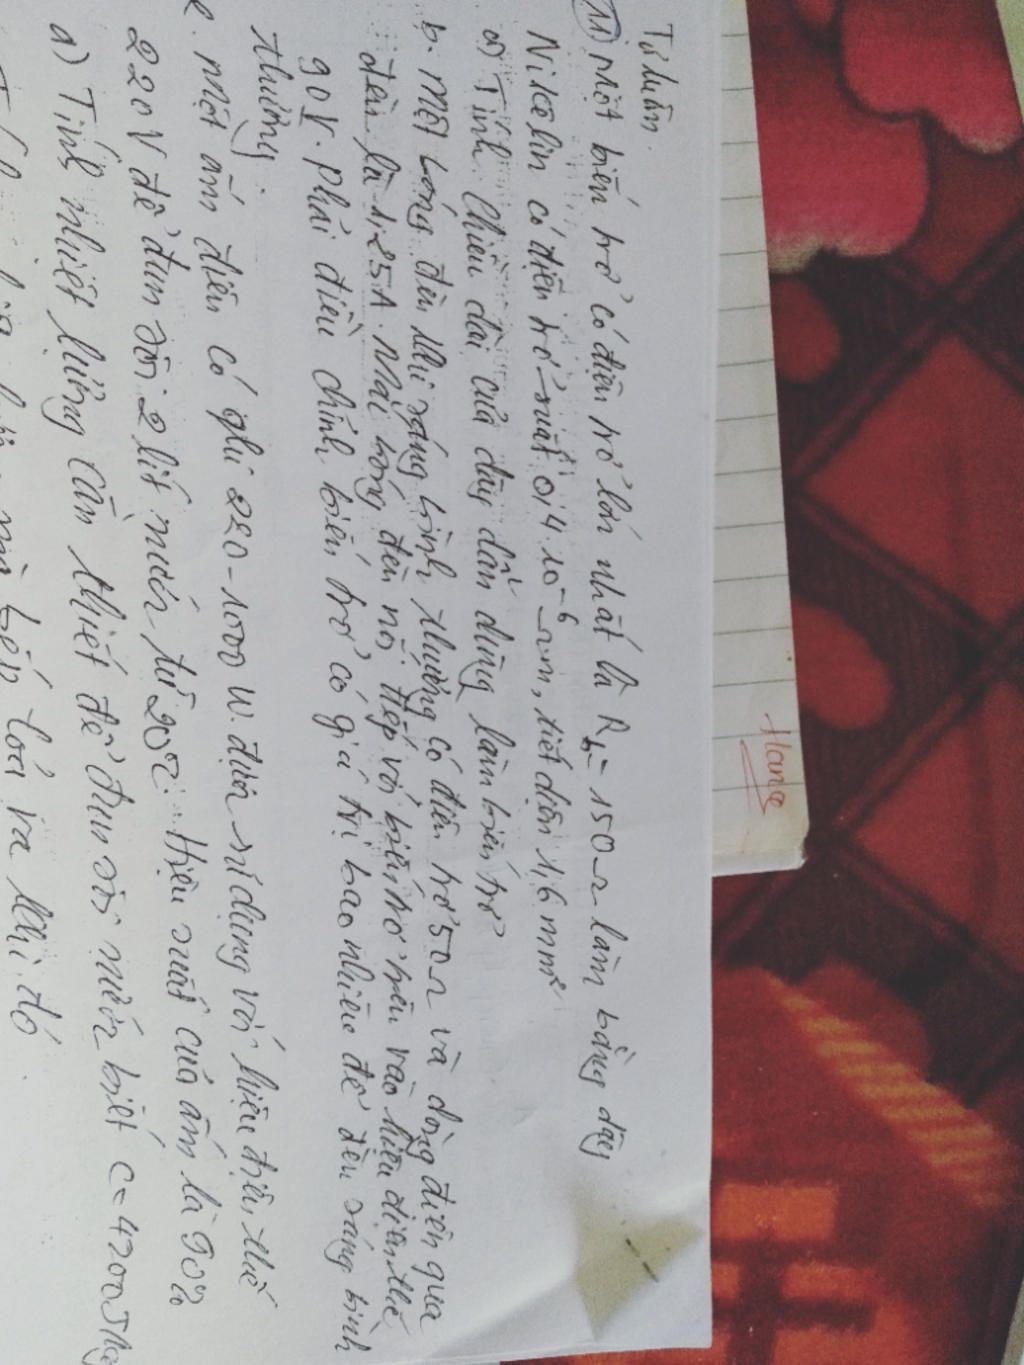 Tự luận.
11) Một biến trở có điện trở lớn nhất là Rb = 150Ω làm bằng dây
Nikêlin có điện trở suất 0,4.10⁻⁶ Ωm, tiết diện 1,6 mm²
a) Tính chiều dài của dây dẫn dùng làm biến trở
b. Một bóng đèn khi sáng bình thường có điện trở 50Ω và dòng điện qua
đèn là 1,25A. Mắc bóng đèn nối tiếp với biến trở trên vào hiệu điện thế
90V. Phải điều chỉnh biến trở có giá trị bao nhiêu để đèn sáng bình
thường.
Một ấm điện có ghi 220 - 1000 W. được sử dụng với hiệu điện thế
220V để đun sôi 2 lít nước từ 20°C. Hiệu suất của ấm là 90%
a) Tính nhiệt lượng cần thiết để đun sôi nước biết C = 4200J/kg
bếp toả ra khi đó
Hana